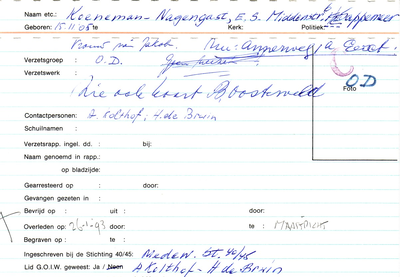 Naam etc.: Koeneman-Nagengast, E.S. Middenstr. Hoppemeer
Geboren: 15.11.05 te Kerk: Politiek:
Trouw na Nu: Annerweg Eext
Verzetsgroep : O.D.
Verzetswerk :
Foto O.D
Zie ook kaart B. Oosterveld
Contactpersonen: A Kolthof; H. de Bruin
Schuilnaam :
Verzetsrapp. ingel. dd. : bij:
Naam genoemd in rapp.:
op bladzijde:
Gearresteerd op : door:
Gevangen gezeten in :
Bevrijd op : uit : door:
Overleden op: 26-1-93 door: te : MAASTRICHT
Begraven op : te :
Ingeschreven bij de Stichting 40/45: Niedorr. St. 40/45
Lid G.O.I.W. geweest: Ja / Neen A Kolthof - H de Bruin